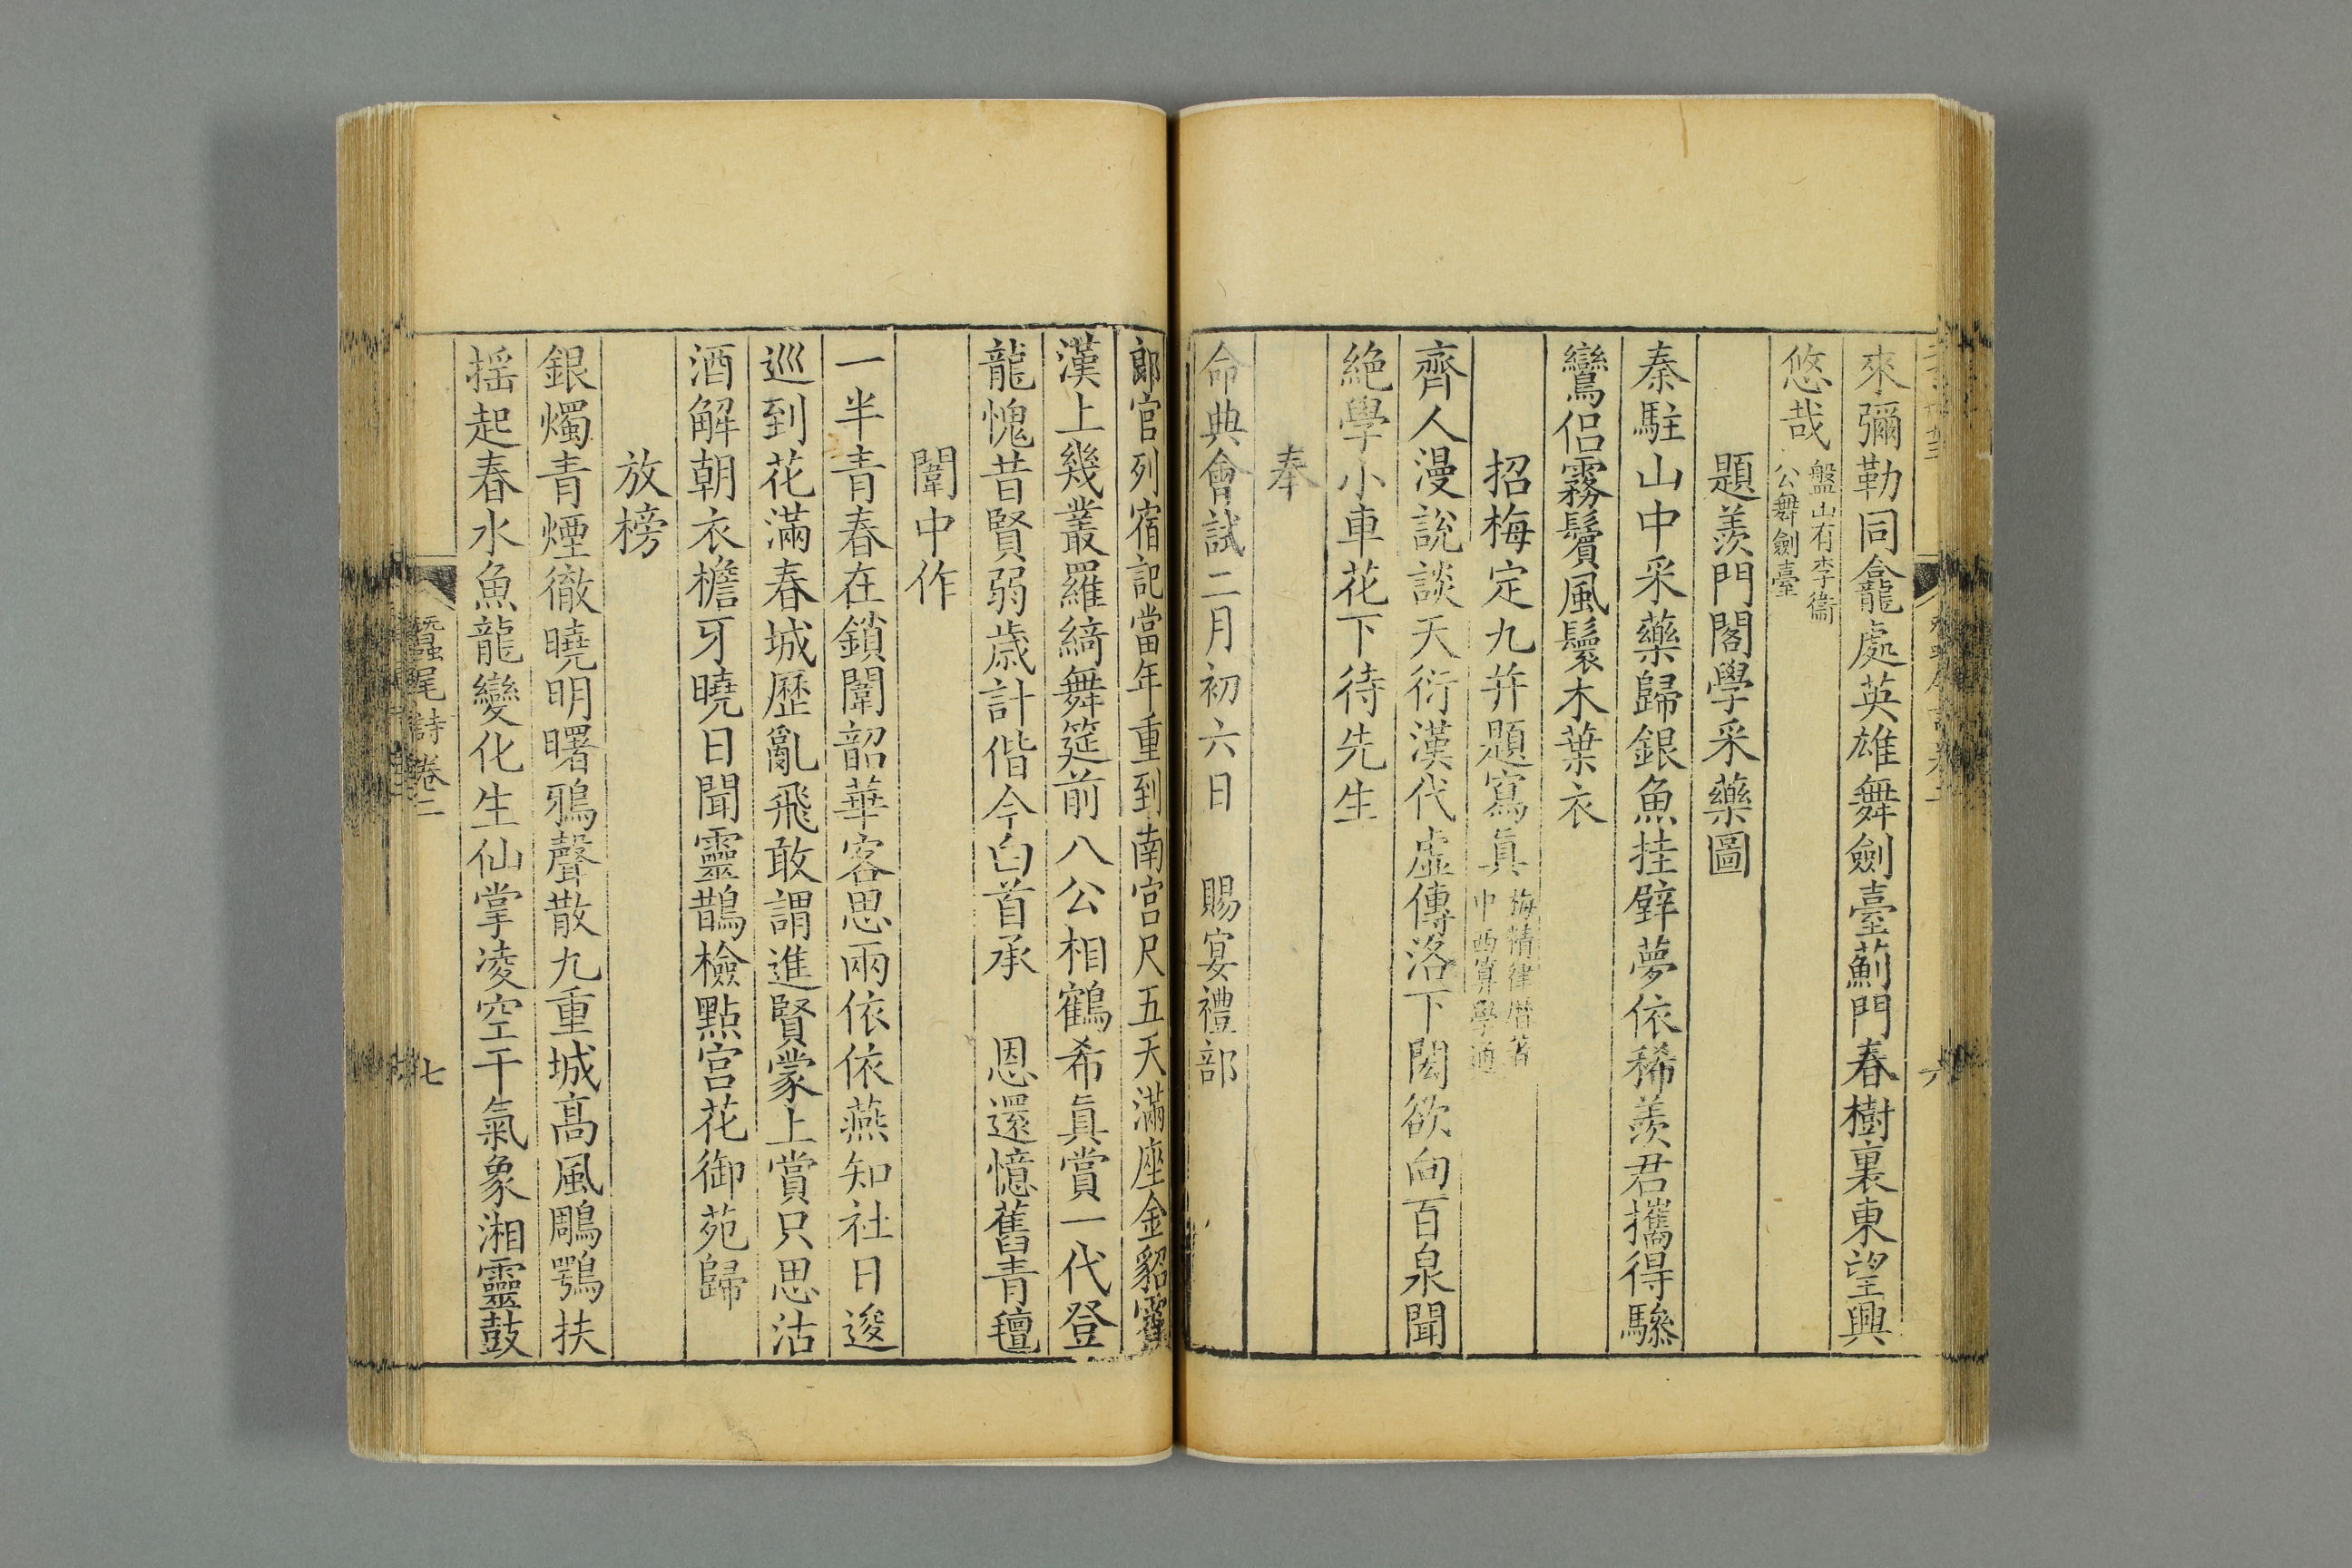 來彌勒同龕處英雄舞劍臺薊門春樹裏東望興
悠哉盤山有李衞公舞劍臺
題羨門閣學采藥圖
秦駐山中采藥歸銀魚挂壁夢依稀羨君攜得驂
鸞侶霧鬢風鬟木葉衣
招梅定九幷題寫眞梅精律曆著中西算學通
齊人漫說談天衍漢代虛傳洛下閎欲向百泉聞
絶學小車花下待先生
奉
命典會試二月初六日 賜宴禮部
郞官列宿記當年重到南宮尺五天滿座金貂霄
漢上幾叢羅綺舞筵前八公相鶴希眞賞一代登
龍愧昔賢弱歲計偕今白首承 恩還憶舊青氊
闈中作
一半青春在鎖闈韶華客思兩依依燕知社日逡
巡到花滿春城歷亂飛敢謂進賢蒙上賞只思沽
酒解朝衣檐牙曉日聞靈鵲檢點宮花御苑歸
放榜
銀燭青煙徹曉明曙鴉聲散九重城高風鵰鶚扶
搖起春水魚龍變化生仙掌凌空干氣象湘靈鼓
蠶尾詩卷二
七